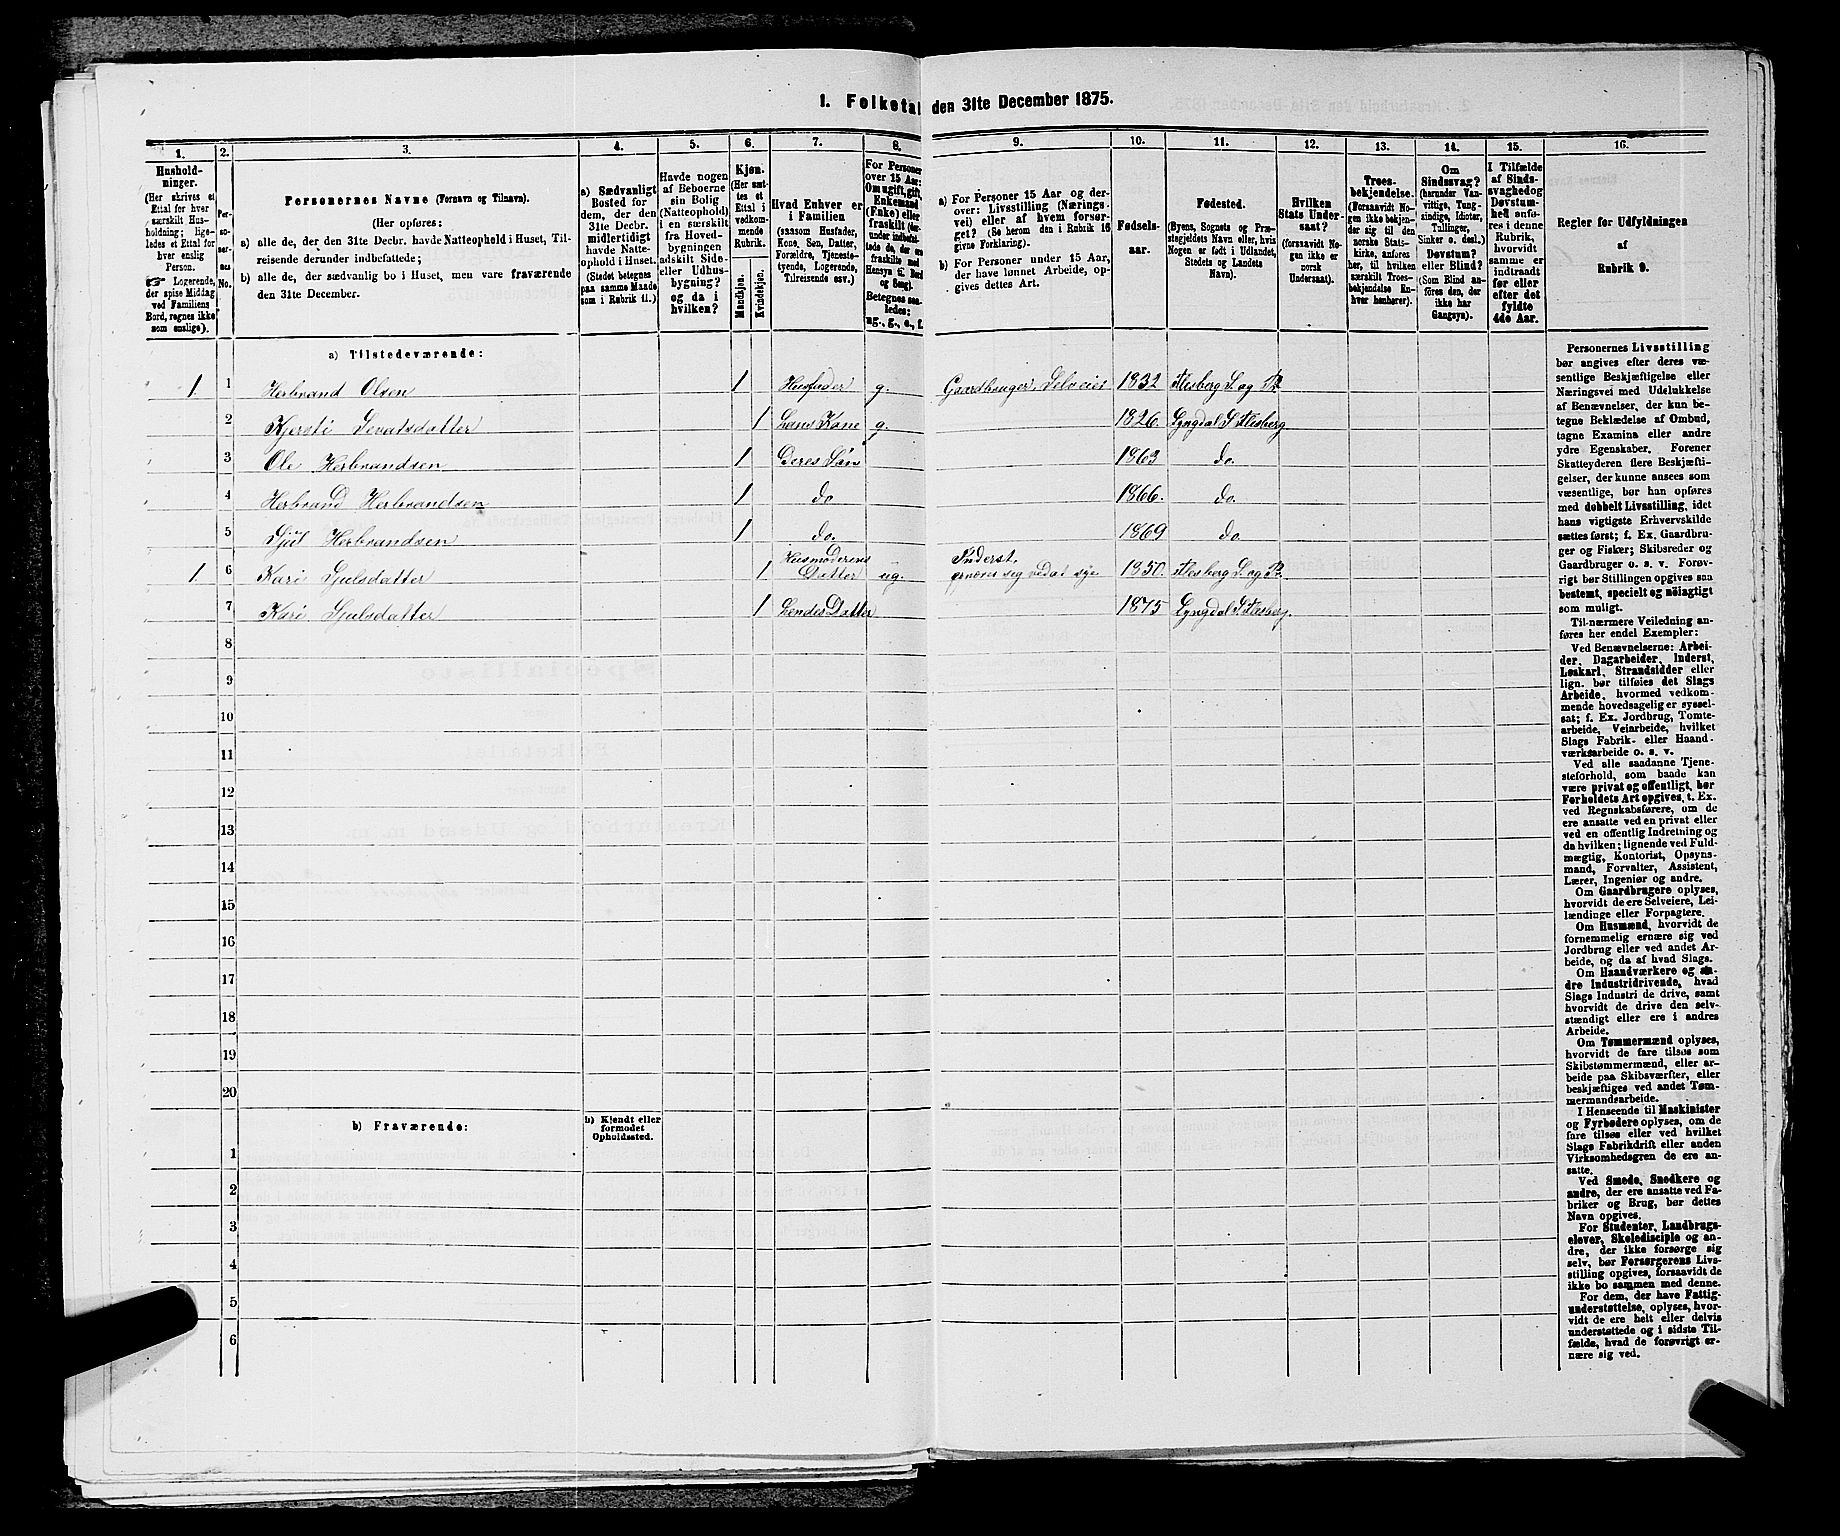 1. Folketal den 31te December 1875.
1. 2. 3. 4. 5. 6. 7. 8. 9. 10. 11. 12. 13. 14. 15. 16.
Hushold-
ninger.
(Her skrives et
Ettal for hver
særskilt Hus-
holdning; lige-
ledes et Ettal for
hver enslig
Person.
☞ Logerende,
der spise Middag
ved Familiens
Bord, regnes ikke
som enslige).
Per-
so-
ner-
nes
No.
Personernes Navne (Fornavn og Tilnavn).
(Her opføres:
a) alle de, der den 31te Decbr. havde Natteophold i Huset, Til-
reisende derunder indbefattede;
b) alle de, der sædvanlig bo i Huset, men vare fraværende
den 31te December.
a) Sædvanligt
Bosted for
dem, der den
31te Decbr.
midlertidigt
havde Natte-
ophold i Huset.
(Stedet betegnes
paa samme Maade
som i Rubrik 11.)
Havde nogen
af Beboerne
sin Bolig
(Natteophold)
i en særskilt
fra Hoved-
bygningen
adskilt Side-
eller Udhus-
bygning?
og da i
hvilken?
Kjøn.
(Her sæt-
tes et
Ettal i
vedkom-
mende
Rubrik.
Mandkjøn.
Kvindekjøn.
Hvad Enhver er
i Familien
(saasom Husfader,
Kone, Søn, Datter,
Forældre, Tjeneste-
tyende, Logerende,
Tilreisende osv.)
For Personer
over 15 Aar:
Om ugift, gift,
Enkemand
(Enke) eller
fraskilt (der-
under indbefat-
tede de, der ere
fraskilte med
Hensyn til Bord
og Seng).
Betegnes saa-
ledes:
ug., g., e., f.
a) For Personer 15 Aar og der-
over: Livsstilling (Nærings-
vei) eller af hvem forsør-
get? (Se herom den i Rubrik 16
givne Forklaring).
b) For Personer under 15 Aar,
der have lønnet Arbeide, op-
gives dettes Art.
Fødsels-
aar.
Fødested.
(Byens, Sognets og Præ-
stegjeldets Navn eller, hvis
Nogen er født i Udlandet,
Stedets og Landets
Navn).
Hvilken
Stats Under-
saat?
(forsaavidt No-
gen ikke er
norsk
Undersaat).
Troes-
bekjendelse.
(Forsaavidt No-
gen ikke bekjen-
der sig til den
norske Stats-
kirke, anføres
her, til hvilken
særskilt Troes-
bekjendelse En-
hver henhører).
Om
Sindssvag?
(herunder Van-
vittige, Tung-
sindige, Idioter,
Tullinger,
Sinker o. desl.)
Døvstum?
eller Blind?
(Som Blind an-
føres den, der
ikke har
Gangsyn).
I Tilfælde
af Sinds-
svaghed og
Døvstum-
hed anfø-
res i denne
Rubrik,
hvorvidt
samme er
indtraadt
før eller
efter det
fyldte
4de Aar.
Regler for Udfyldningen
af
Rubrik 9.
a) Tilstedeværende:
1. 1 Herbrand Olsen 1 Husfader g. Gaardbruger, Selveier 1832 Flesberg S. og Pr.
2 Kjersti 1 Hans Kone g. 1826. Lyngdal S Flesberg
3 Ole Herbrandsen 1 Deres Søn 1863 do.
4 Herbrand Herbrandsen 1 do 1866. do.
5 Gjul Herbrandsen 1 do. 1869 do.
1. 6 Kari Gjulsdatter 1 Husmoderens Datter ug. Inderst, ernærer sig ved at sye 1850. Flesberg S. og Pr.
7 Kari Gjulsdatter 1 Hendes Datter 1875 Lyngdal S Flesberg.
8
9
10
11
12
13
14
15
16
17
18
19
20
b) Fraværende:
b) Kjendt eller
formodet
Opholdssted.
1
2
3
4
5
6
Personernes Livsstilling
bør angives efter deres væ-
sentlige Beskjæftigelse eller
Næringsvei med Udelukkelse
af Benævnelser, der kun be-
tegne Beklædelse af Ombud,
tagne Examina eller andre
ydre Egenskaber. Forener
Skatteyderen flere Beskjæfti-
gelser, der kunne ansees som
væsentlige, bør han opføres
med dobbelt Livsstilling, idet
hans vigtigste Erhvervskilde
sættes først; f. Ex. Gaardbru-
ger og Fisker; Skibsreder og
Gaardbruger o. s. v. Forøv-
rigt bør Stillingen opgives saa
bestemt, specielt og nøiagtigt
som muligt.
Til nærmere Veiledning an-
føres her endel Exempler:
Ved Benævnelserne: Arbei-
der, Dagarbeider, Inderst,
Løskarl, Strandsidder eller
lign. bør tilføies det Slags
Arbeide, hvormed vedkom-
mende hovedsagelig er syssel-
sat; f. Ex. Jordbrug, Tomte-
arbeide, Veiarbeide, hvilket
Slags Fabrik- eller Haand-
værksarbeide o. s. v.
Ved alle saadanne Tjene-
steforhold, som baade kan
være privat og offentligt, bør
Forholdets Art opgives, t. Ex.
ved Regnskabsførere, om de
ere ansatte ved en privat eller
ved en offentlig Indretning og
da hvilken; lignende ved Fuld-
mægtig, Kontorist, Opsyns-
mand, Forvalter, Assistent,
Lærer, Ingeniør og andre.
Om Gaardbrugere oplyses,
hvorvidt de ere Selveiere, Lei-
lændinge eller Forpagtere.
Om Husmænd, hvorvidt de
fornemmelig ernære sig ved
Jordbrug eller ved andet Ar-
beide, og da af hvad Slags.
Om Haandværkere og an-
dre Industridrivende, hvad
Slags Industri de drive, samt
hvorvidt de drive den selv-
stændigt eller ere i andres
Arbeide.
Om Tømmermænd oplyses,
hvorvidt de fare tilsøs som
Skibstømmermænd, eller ar-
beide paa Skibsværfter, eller
beskjæftiges ved andet Tøm-
mermandsarbeide.
I Henseende til Maskinister
og Fyrbødere oplyses, om de
fare tilsøs eller ved hvilket
Slags Fabrikdrift eller anden
Virksomhedsgren de ere an-
satte.
Ved Smede, Snedkere og
andre, der ere ansatte ved Fa-
briker og Brug, bør dettes
Navn opgives.
For Studenter, Landbrugs-
elever, Skoledisciple og an-
dre, der ikke forsørge sig
selv, bør Forsørgerens Livs-
stilling opgives, forsaavidt de
ikke bo sammen med denne.
For dem, der have Fattig-
understøttelse, oplyses, hvor-
vidt de ere helt eller delvis
understøttede og i sidste Til-
fælde, hvad de forøvrigt er-
nære sig ved.